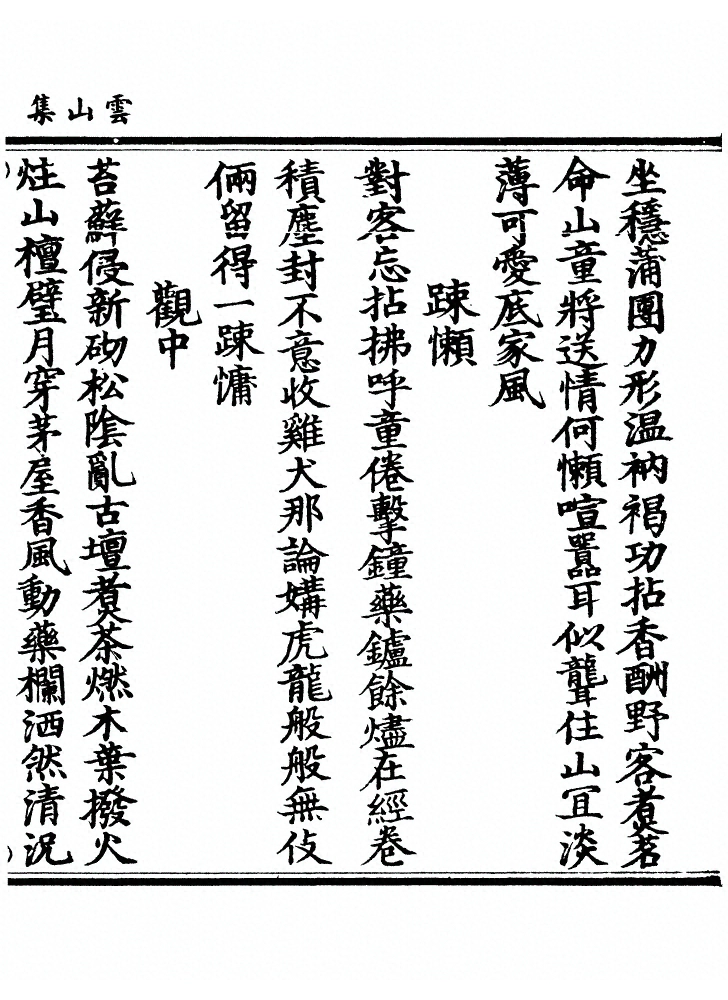 雲山集
坐穩蒲團力形温衲褐功拈香酬野客煮茗
命山童將送情何懶喧囂耳似聾住山冝淡
薄可愛底家風
踈懶
對客忘拈拂呼童倦擊鐘藥鑪餘燼在經卷
積塵封不意收雞犬那論媾虎龍般般無伎
倆留得一踈慵
觀中
苔蘚侵新砌松陰亂古壇煮茶燃木葉撥火
炷山檀璧月穿茅屋香風動藥欄洒然清况